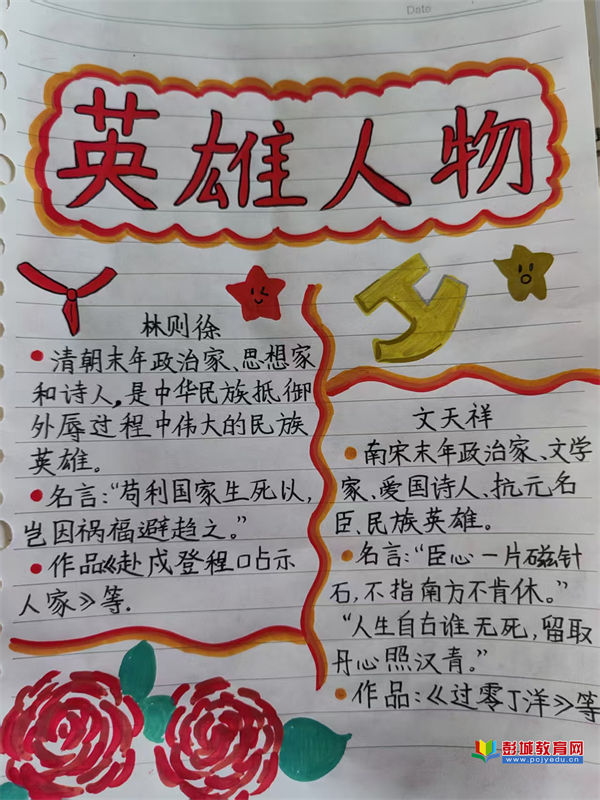 Date
英雄人物
林则徐
清朝末年政治家、思想家
和诗人,是中华民族抵御
外辱过程中伟大的民族
英雄。
名言:“苟利国家生死以,
岂因祸福避趋之。”
作品《赴戍登程口占示
人家》等.
文天祥
南宋末年政治家、文学
家、爱国诗人、抗元名
臣、民族英雄。
名言:“臣心一片磁针
石,不指南方不肯休。”
“人生自古谁无死,留取
丹心照汉青。”
作品:《过零丁洋》等
彭城教育网
www.pcjyedu.cn